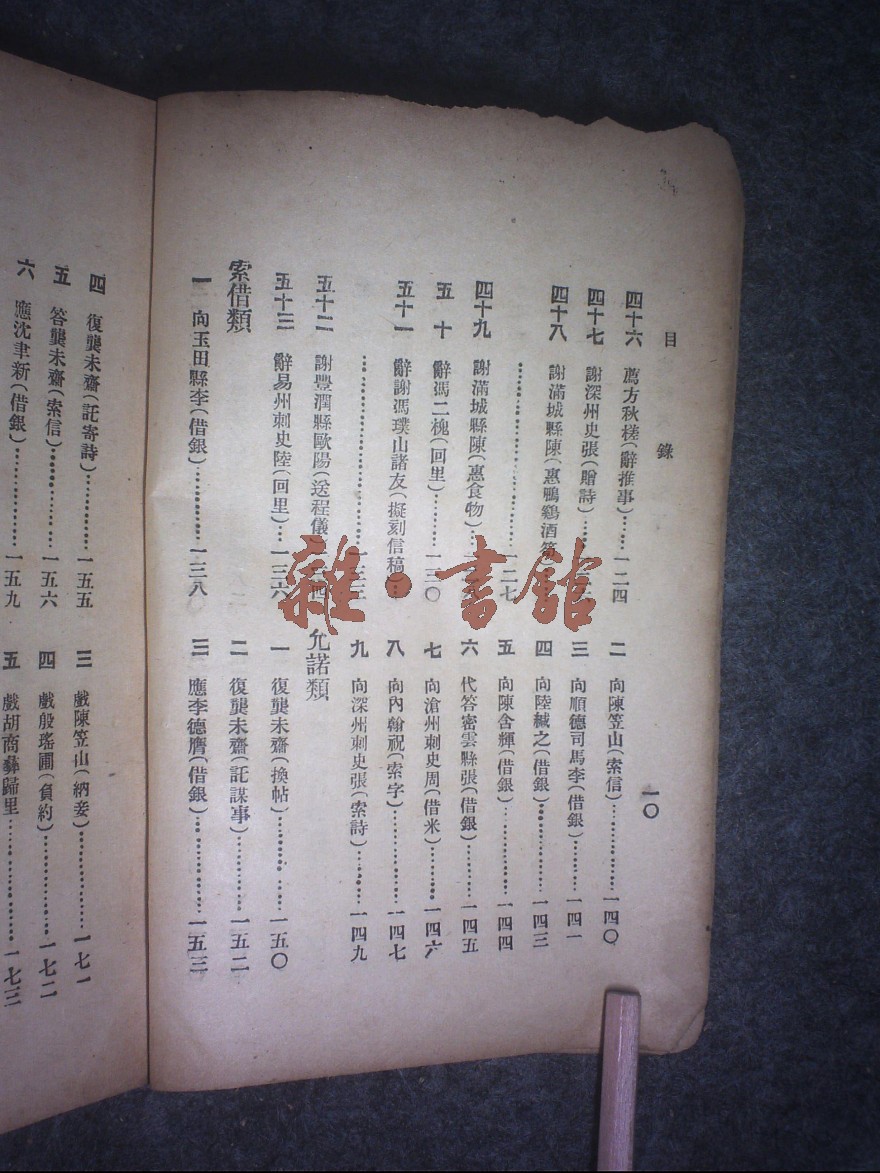 目錄
一〇
四十六 薦方秋槎(辭推事)……一二四
四十七 謝深州史張(贈詩)……
四十八 謝滿城縣陳(惠鴨鷄酒
……一二七
四十九 謝滿城縣陳(惠食物)……一二
五十 辭馮二槐(回里)……一三〇
五十一 辭謝馮璞山諸友(擬刻信稿)…
……一三三
五十二 謝豐潤縣歐陽(送程儀
五十三 辭易州刺史陸(回里)…一三六
索借類
一 向玉田縣李(借銀)……一三八
二 向陳笠山(索信)……一四〇
三 向順德司馬李(借銀)……一四一
四 向陸緘之(借銀)……一四三
五 向陳含輝(借銀)……一四四
六 代答密雲縣張(借銀)……一四五
七 向滄州刺史周(借米)……一四六
八 向內翰祝(索字)……一四七
九 向深州刺史張(索詩)……一四九
允諾類
一 復龔未齋(換帖)……一五〇
二 復龔未齋(託謀事)……一五二
三 應李德膺(借銀)……一五三
四 復龔未齋(託寄詩)……一五五
五 答龔未齋(索信)……一五六
六 應沈聿新(借銀)……一五九
三 戲陳笠山(納妾)……一七一
四 戲殷瑤圃(負約)……一七二
五 戲胡商彝歸里……一七三
雜·書館